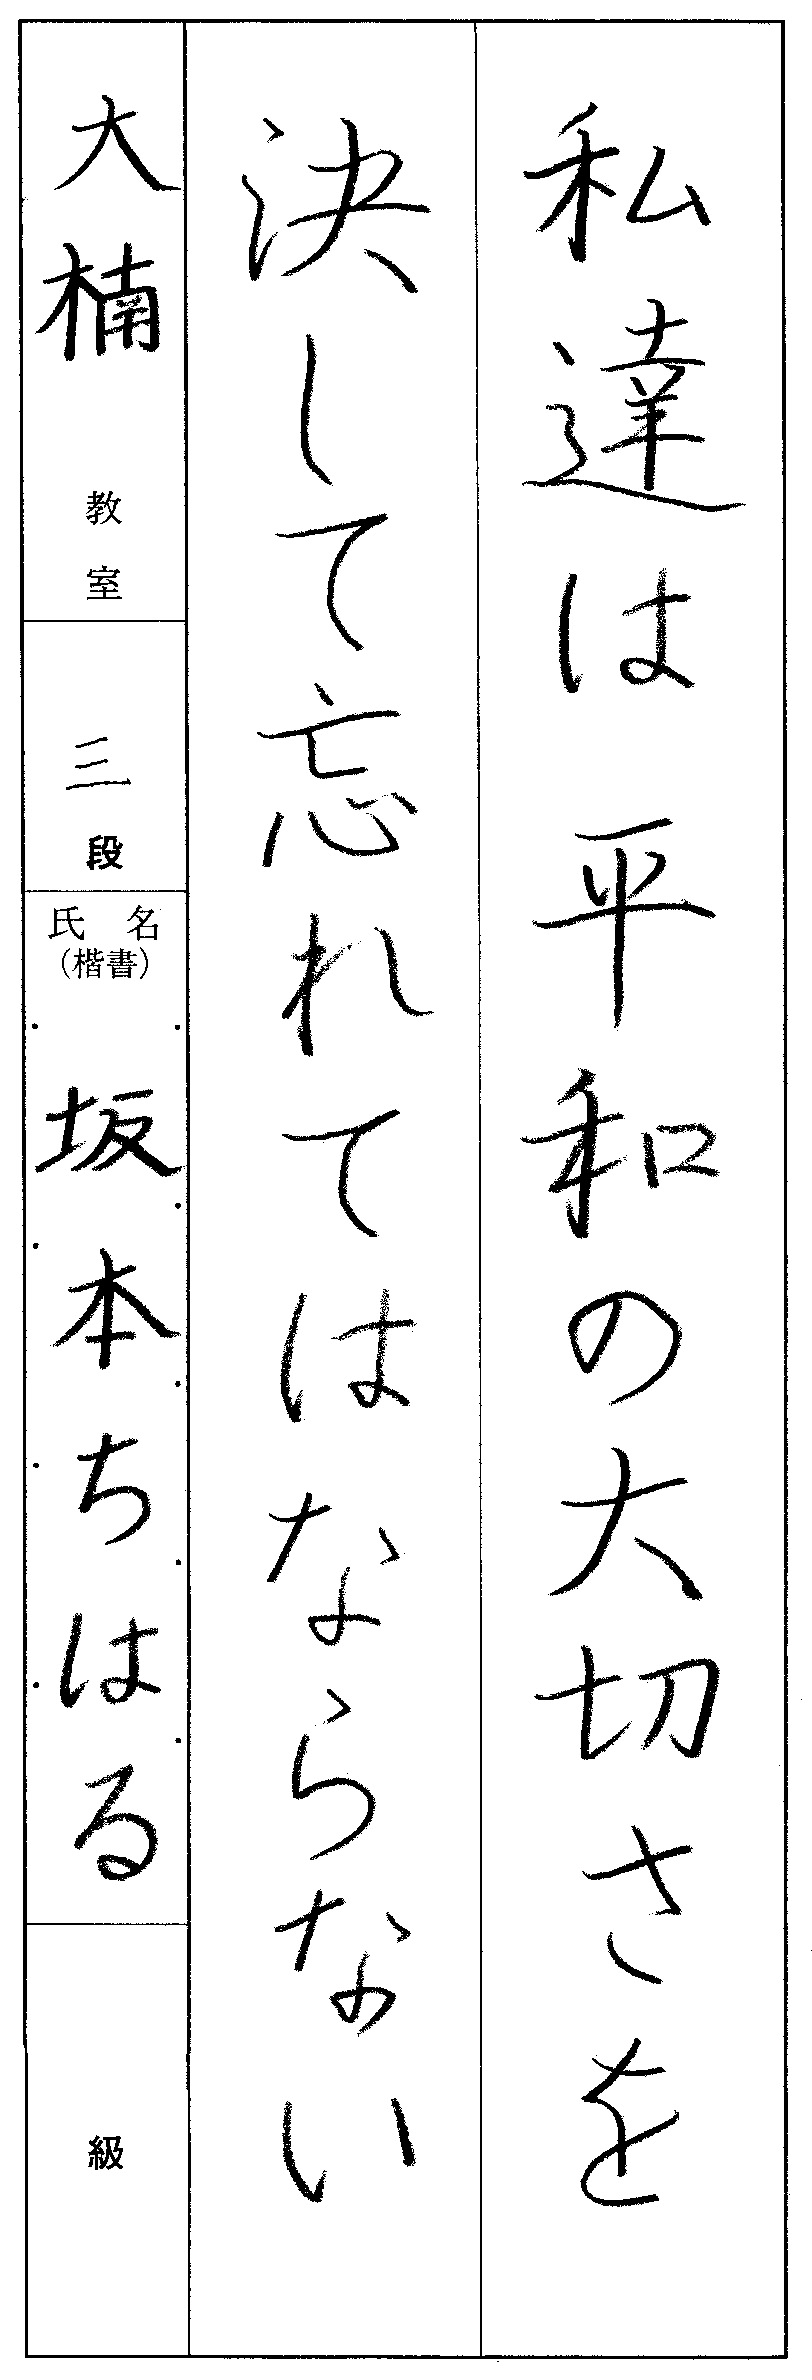 私達は平和の大切さを
決して忘れてはならない
大楠 教室
三 段
氏名
(楷書)
坂本ちはる
級